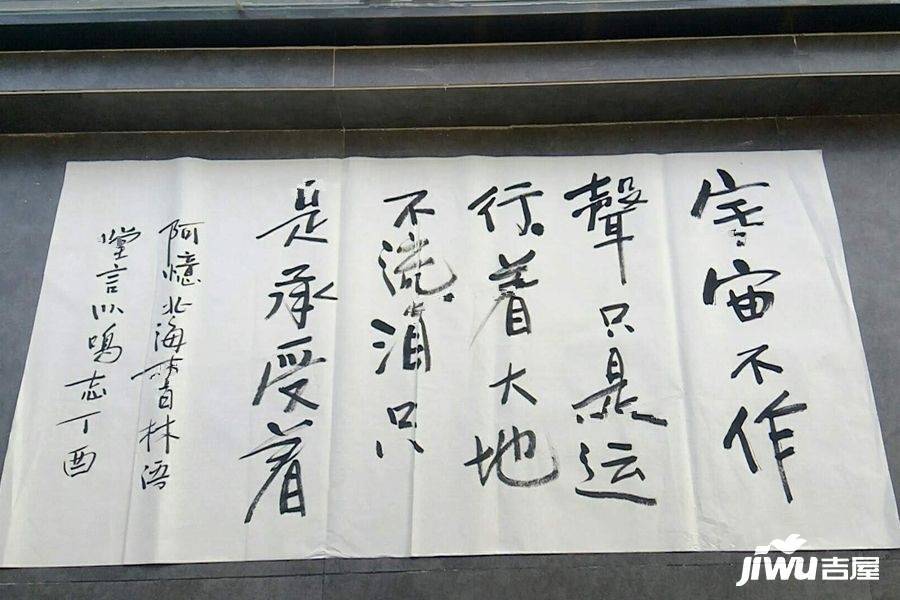 宇宙不作
聲只是运
行着大地
不流消只
是承受着
阿憶北海書林语
堂言以鳴志丁酉
JIWU吉屋